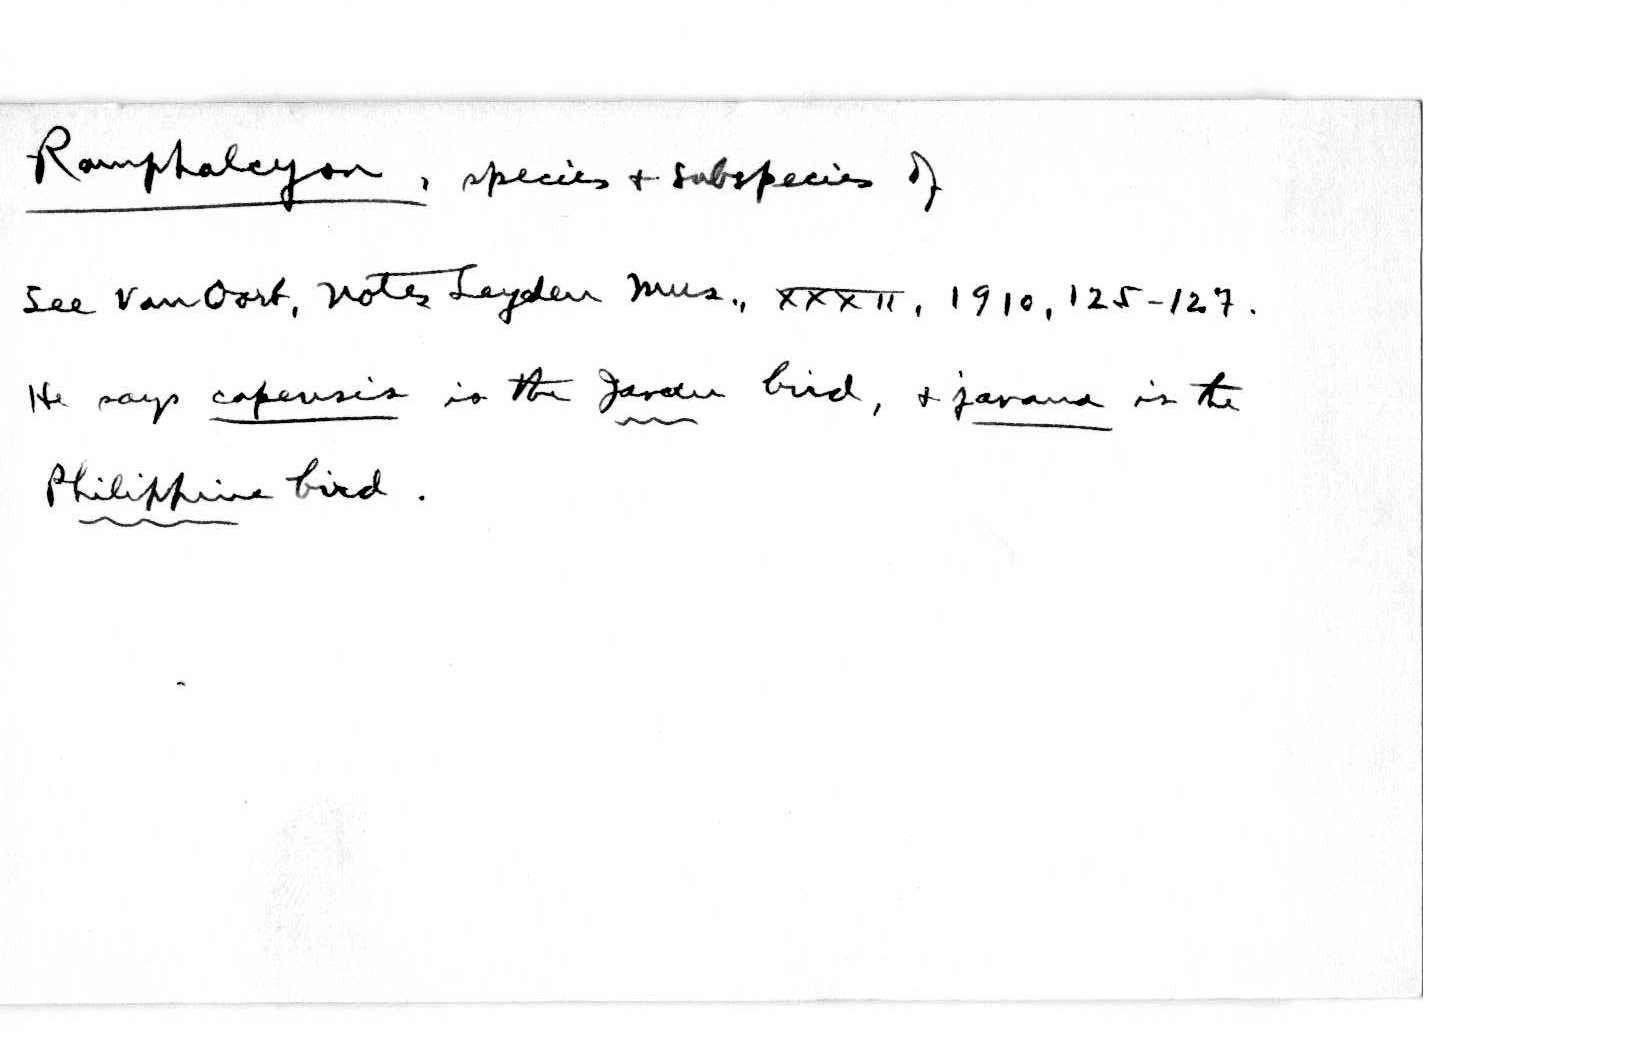 Ramphalcyon, species + subspecies of
See Van Oort, Notes Leyden Mus., XXXII, 1910, 125-127.
He says capensis is the Javan bird, + javana is the
Philippine bird.